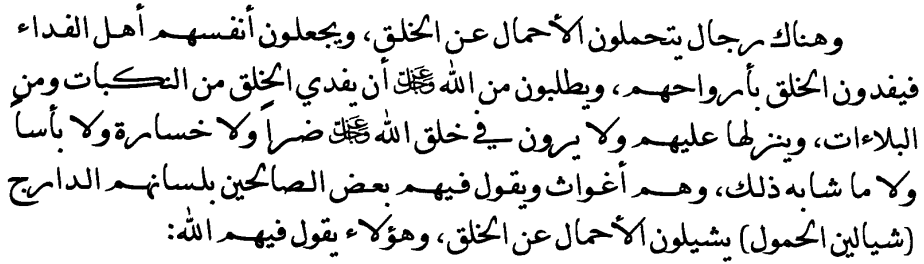 وهناك رجال يتحملون الأحمال عن الخلق، ويجعلون أنفسهم أهل الفداء
فيفدون الخلق بأرواحهم، ويطلبون من الله عز وجل أن يفدي الخلق من النكبات ومن
البلاءات، وينزلها عليهم ولا يرون في خلق الله عز وجل ضراً ولا خسارة ولا بأساً
ولا ما شابه ذلك، وهم أغواث ويقول فيهم بعض الصالحين بلسانهم الدارج
(شيالين الحمول) يشيلون الأحمال عن الخلق، وهؤلاء يقول فيهم الله: